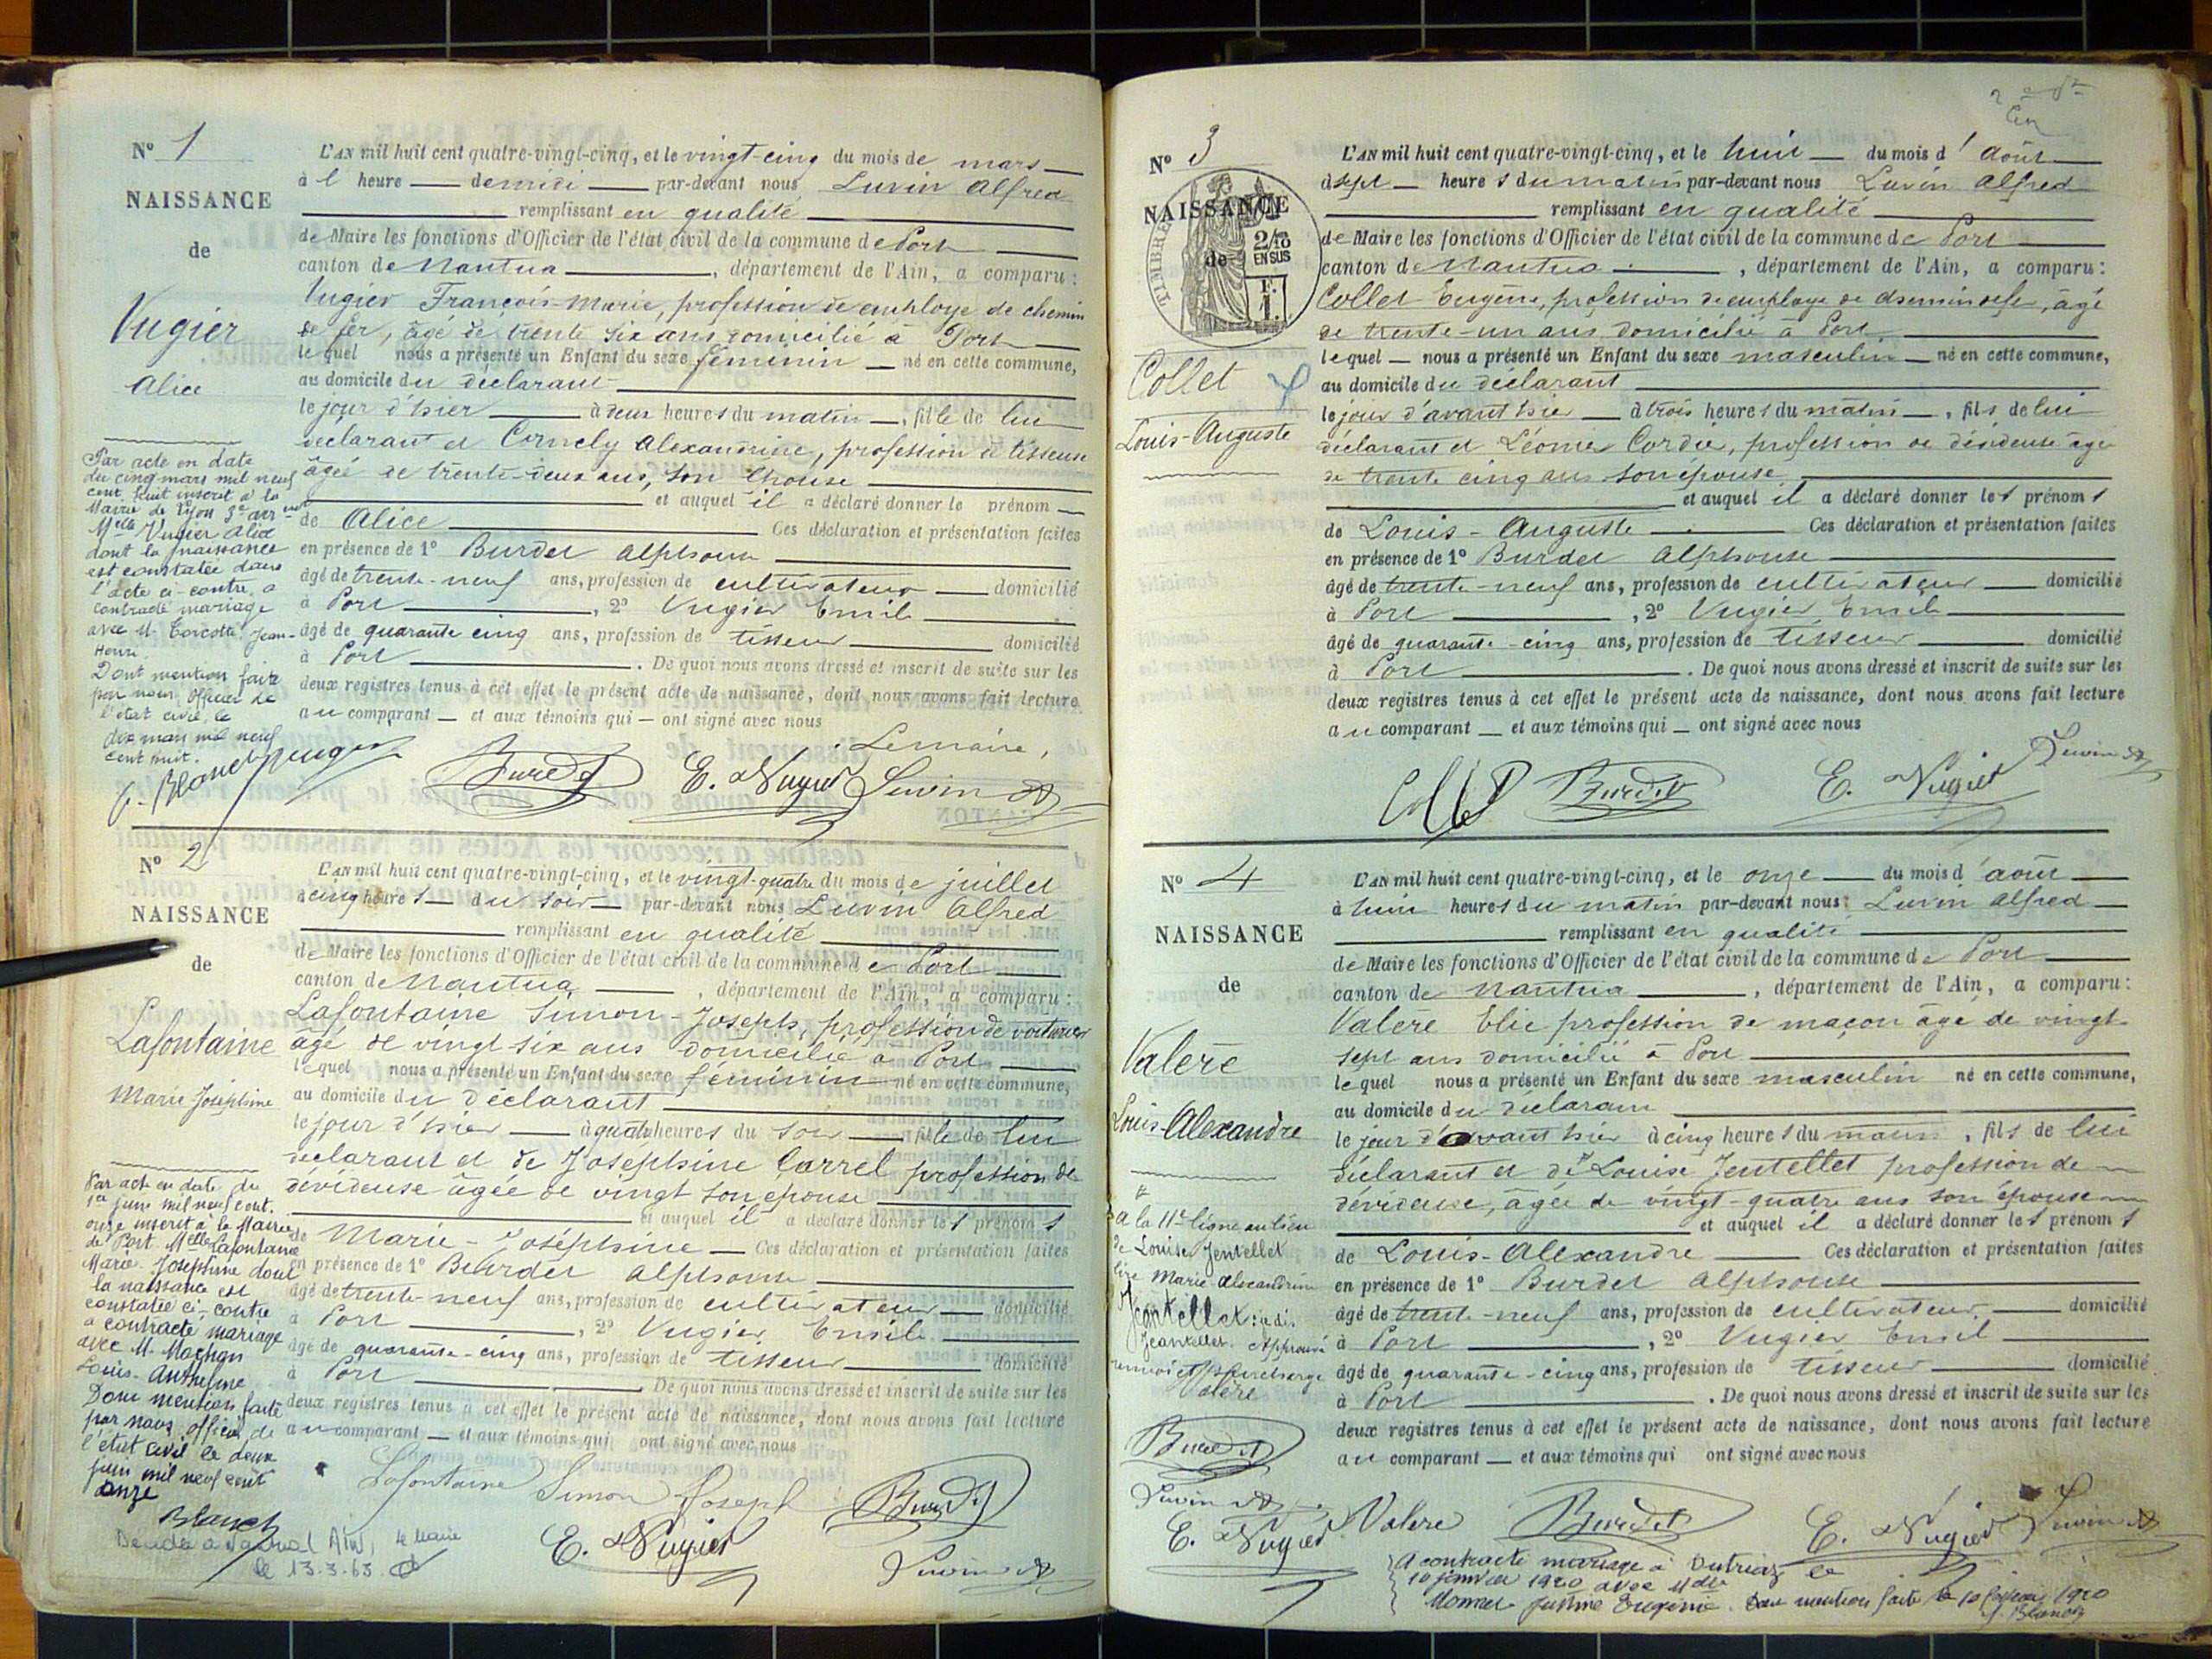 N° 1
NAISSANCE
de
Vugier
Alice
Par acte en date
du cinq mars mil neuf
cent huit inscrit à la
Mairie de Lyon 3e arr
Melle Vugier Alice
dont la naissance
est constatée dans
l'acte ci-contre, a
contracté mariage
avec M. Torcotti Jean-
Henri
Dont mention faite
par nous, Officier de
l'état civil, le
dix mars mil neuf
cent huit.
L'AN mil huit cent quatre-vingt-cinq, et le vingt-cinq du mois de mars
à l heure de midi par-devant nous Luvin Alfred
remplissant en qualité
de Maire les fonctions d'Officier de l'état civil de la commune de Port
canton de Nantua, département de l'Ain, a comparu :
Vugier François-Marie, profession de employé de chemin
de fer, âgé de trente six ans domicilié à Port
lequel nous a présenté un Enfant du sexe féminin né en cette commune,
au domicile du déclarant
le jour d'hier à deux heures du matin, fille de lui
déclarant et Cornely Alexandrine, profession de tisseuse
âgée de trente-deux ans, son épouse
et auquel il a déclaré donner le prénom
de Alice Ces déclaration et présentation faites
en présence de 1° Burdet Alphonse
âgé de trente-neuf ans, profession de cultivateur domicilié
à Port, 2° Vugier Emile
âgé de quarante cinq ans, profession de tisseur domicilié
à Port. De quoi nous avons dressé et inscrit de suite sur les
deux registres tenus à cet effet le présent acte de naissance, dont nous avons fait lecture
au comparant et aux témoins qui ont signé avec nous
Le maire,
Burdet E. Vugier Luvin A
N° 2
NAISSANCE
de
Lafontaine
Marie Joséphine
Par act en date du
1er juin mil neuf cent
onze inscrit à la Mairie
de Port Melle Lafontaine
Marie Joséphine dont
la naissance est
constatée ci-contre
a contracté mariage
avec M. Machon
Louis-Anthelme
Dont mention faite
par nous, officier de
l'état civil le deux
juin mil neuf cent
onze
Blanch
le 13.3.63
L'AN mil huit cent quatre-vingt-cinq, et le vingt-quatre du mois de juillet
à cinq heures du soir par-devant nous Luvin Alfred
remplissant en qualité
de Maire les fonctions d'Officier de l'état civil de la commune de Port
canton de Nantua, département de l'Ain, a comparu :
Lafontaine Simon-Joseph, profession de voiturier
âgé de vingt six ans domicilié à Port
lequel nous a présenté un Enfant du sexe féminin né en cette commune,
au domicile du déclarant
le jour d'hier à quatre heures du soir fille de lui
déclarant et de Josephine Carrel profession de
dévideuse âgée de vingt son épouse
et auquel il a déclaré donner les prénoms
de Marie-Joséphine Ces déclaration et présentation faites
en présence de 1° Burdet Alphonse
âgé de trente-neuf ans, profession de cultivateur domicilié
à Port, 2° Vugier Emile
âgé de quarante-cinq ans, profession de tisseur domicilié
à Port De quoi nous avons dressé et inscrit de suite sur les
deux registres tenus à cet effet le présent acte de naissance, dont nous avons fait lecture
au comparant et aux témoins qui ont signé avec nous
Lafontaine Simon Joseph Burdet
E. Vugier Luvin A
N° 3
NAISSANCE
de
TIMBRE
2/10
EN SUS
F.
1.
Collet
Louis-Auguste
L'AN mil huit cent quatre-vingt-cinq, et le huit du mois d'août
à sept heures du matin par-devant nous Luvin Alfred
remplissant en qualité
de Maire les fonctions d'Officier de l'état civil de la commune de Port
canton de Nantua, département de l'Ain, a comparu :
Collet Eugène, profession de employé de chemin de fer, âgé
de trente-un ans domicilié à Port
lequel nous a présenté un Enfant du sexe masculin né en cette commune,
au domicile du déclarant
le jour d'avant hier à trois heures du matin, fils de lui
déclarant et Léonie Cordié, profession de dévideuse âgé
de trente cinq ans son épouse
et auquel il a déclaré donner les prénoms
de Louis-Auguste Ces déclaration et présentation faites
en présence de 1° Burdet Alphonse
âgé de trente-neuf ans, profession de cultivateur domicilié
à Port, 2° Vugier Emile
âgé de quarante-cinq ans, profession de tisseur domicilié
à Port. De quoi nous avons dressé et inscrit de suite sur les
deux registres tenus à cet effet le présent acte de naissance, dont nous avons fait lecture
au comparant et aux témoins qui ont signé avec nous
Collet Burdet E. Vugier Luvin A
N° 4
NAISSANCE
de
Valère
Louis-Alexandre
à la 11e ligne au lieu
de Louise Jentellet
lire Marie Alexandrine
Jeantellet
Valère
Burdet
Luvin A
E. Vugier
L'AN mil huit cent quatre-vingt-cinq, et le onze du mois d'août
à huit heures du matin par-devant nous Luvin Alfred
remplissant en qualité
de Maire les fonctions d'Officier de l'état civil de la commune de Port
canton de Nantua, département de l'Ain, a comparu :
Valère Elie profession de maçon âgé de vingt-
sept ans domicilié à Port
lequel nous a présenté un Enfant du sexe masculin né en cette commune,
au domicile du déclarant
le jour d'avant hier à cinq heures du matin, fils de lui
déclarant et de Louise Jentellet profession de
dévideuse, âgée de vingt-quatre ans son épouse
et auquel il a déclaré donner les prénoms
de Louis-Alexandre Ces déclaration et présentation faites
en présence de 1° Burdet Alphonse
âgé de trente-neuf ans, profession de cultivateur domicilié
à Port, 2° Vugier Emile
âgé de quarante-cinq ans, profession de tisseur domicilié
à Port. De quoi nous avons dressé et inscrit de suite sur les
deux registres tenus à cet effet le présent acte de naissance, dont nous avons fait lecture
au comparant et aux témoins qui ont signé avec nous
Valère Burdet E. Vugier Luvin A
A contracté mariage à Outriaz le
10 janvier 1920 avec Melle
Justine Eugénie. Dont mention faite le 1920